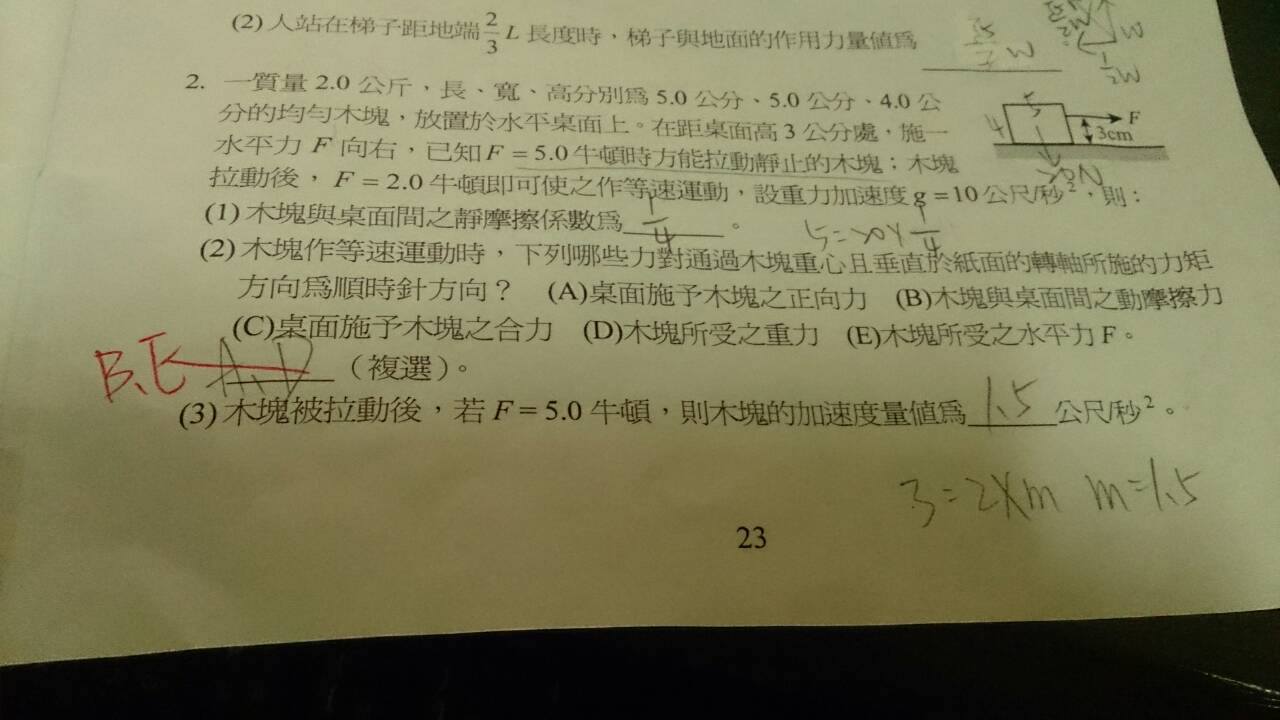 (2) 人站在梯子距地端 2/3 L 長度時，梯子與地面的作用力量值為
W
W
1/2W
2. 一質量 2.0 公斤，長、寬、高分別為 5.0 公分、5.0 公分、4.0 公
分的均勻木塊，放置於水平桌面上。在距桌面高 3 公分處，施一
水平力 F 向右，已知 F = 5.0 牛頓時方能拉動靜止的木塊；木塊
拉動後，F = 2.0 牛頓即可使之作等速運動，設重力加速度 g = 10 公尺/秒²，則：
5
4
F
3cm
20N
(1) 木塊與桌面間之靜摩擦係數為 1/4 。
5=20×1/4
(2) 木塊作等速運動時，下列哪些力對通過木塊重心且垂直於紙面的轉軸所施的力矩
方向為順時針方向？ (A)桌面施予木塊之正向力 (B)木塊與桌面間之動摩擦力
(C)桌面施予木塊之合力 (D)木塊所受之重力 (E)木塊所受之水平力 F。
B、E A、D （複選）。
(3) 木塊被拉動後，若 F = 5.0 牛頓，則木塊的加速度量值為 1.5 公尺/秒²。
3=2×m m=1.5
23